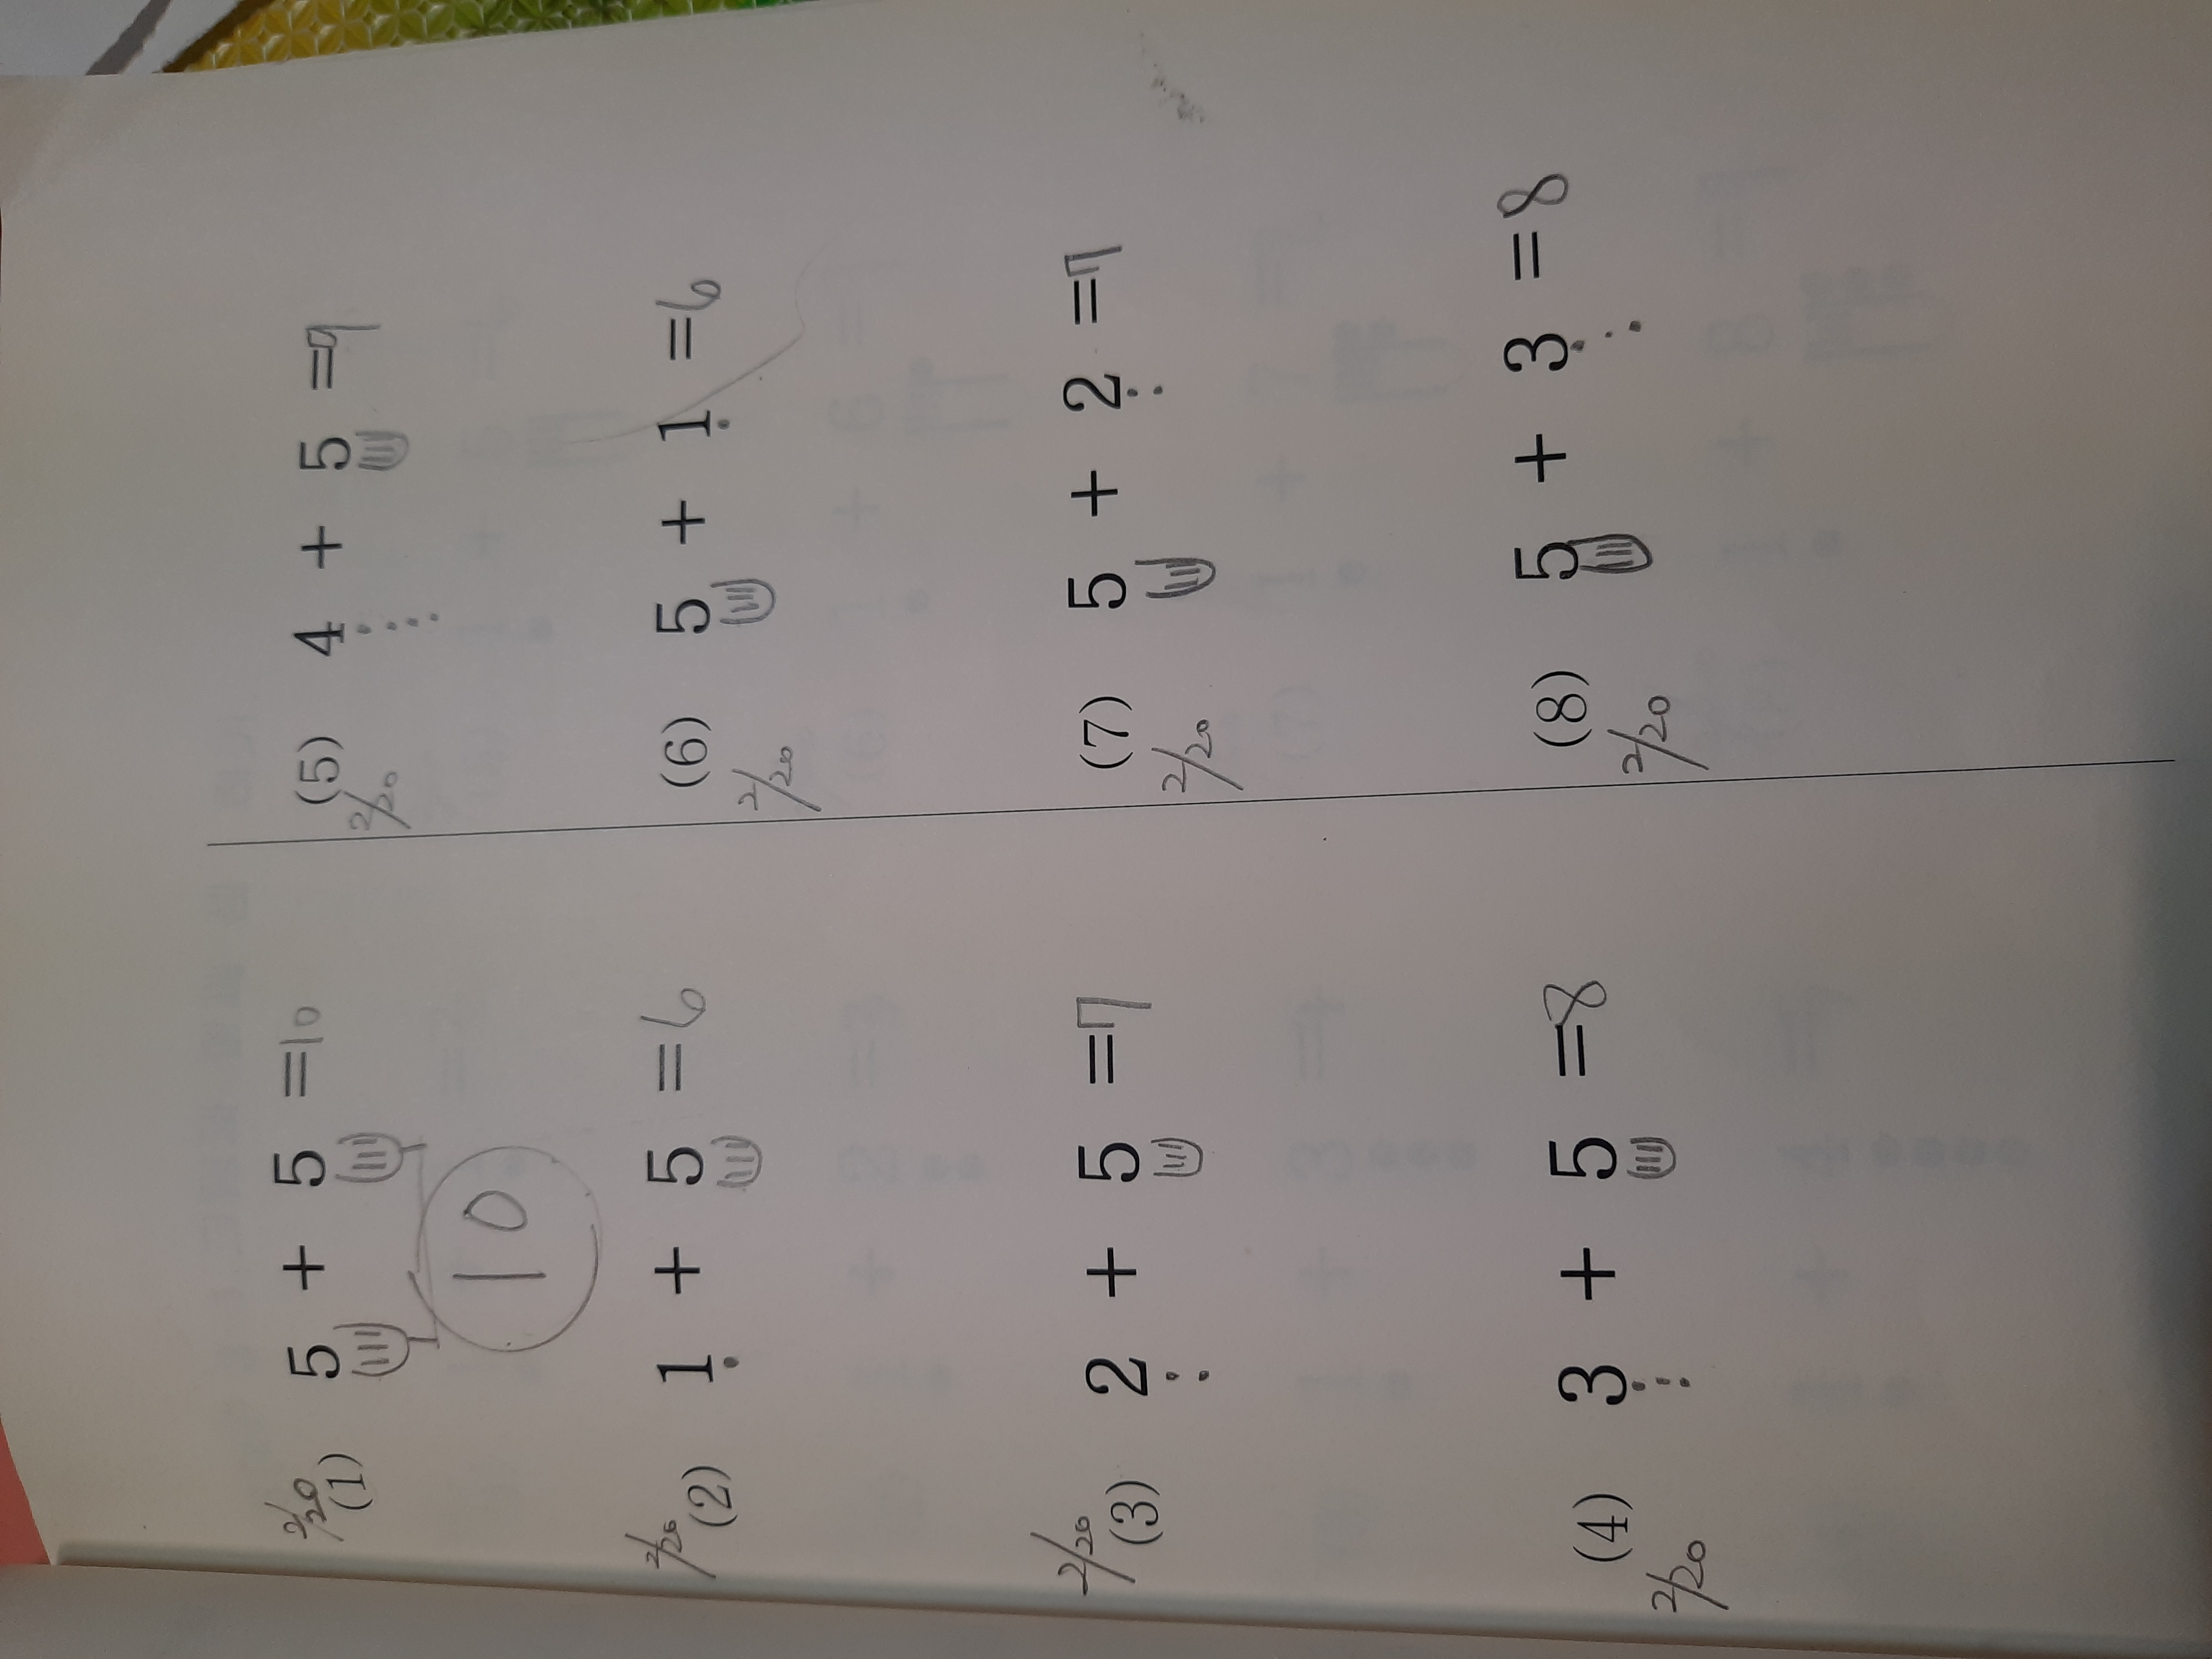 2/20
(1) 5 + 5 =10
10
2/20
(2) 1 + 5 =6
2/20
(3) 2 + 5 =7
(4) 3 + 5 =8
2/20
(5) 4 + 5 =9
2/20
(6) 5 + 1 =6
2/20
(7) 5 + 2 =7
2/20
(8) 5 + 3 =8
2/20